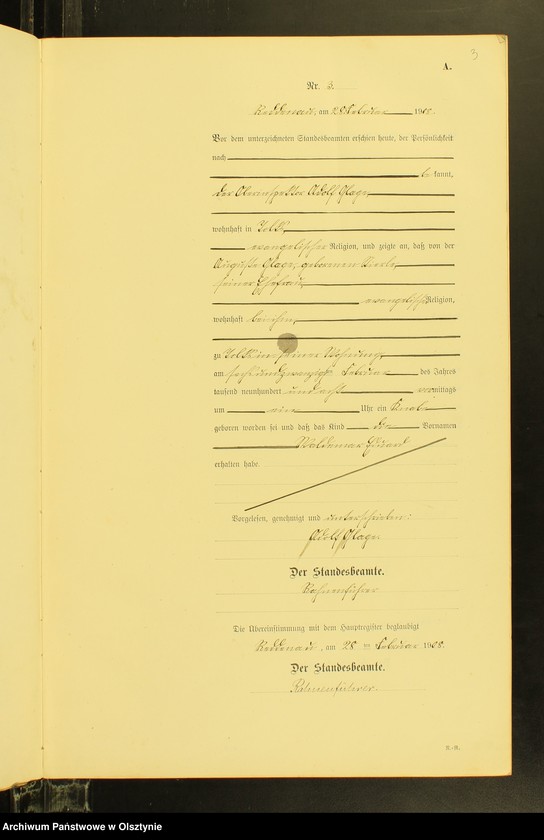 3
A.
Nr. 3.
Reddenau, am 28 Februar 1908.
Vor dem unterzeichneten Standesbeamten erschien heute, der Persönlichkeit
nach
be kannt,
der Oberinspektor Adolf Glage
wohnhaft in
evangelischer Religion, und zeigte an, daß von der
Auguste Glage, geborenen
seiner Ehefrau,
evangelischer Religion,
wohnhaft bei ihm,
zu in seiner Wohnung
am sechsundzwanzigsten Februar des Jahres
tausend neunhundert und acht vormittags
um eine Uhr ein Knabe
geboren worden sei und daß das Kind die Vornamen
Waldemar Eduard
erhalten habe.
Vorgelesen, genehmigt und unterschrieben:
Adolf Glage
Der Standesbeamte.
Rahnenführer
Die Übereinstimmung mit dem Hauptregister beglaubigt
Reddenau, am 28 ten Februar 1908.
Der Standesbeamte.
Rahnenführer.
Archiwum Państwowe w Olsztynie